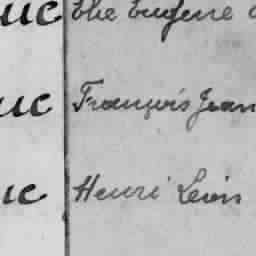 uc Elie Eugène
uc François Jean
uc Henri Léon